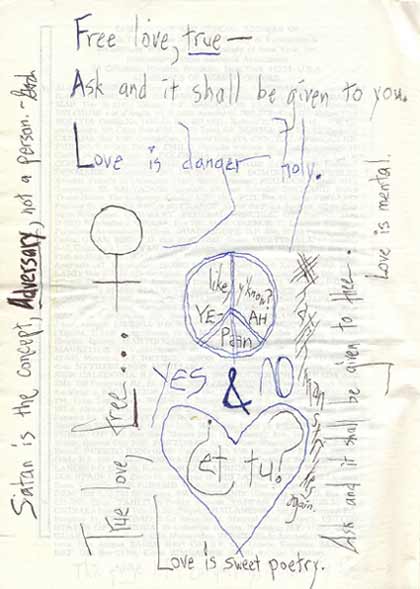 Free love, true—
Ask and it shall be given to you.
Love is danger holy.
like, y'know?
YE- AH
Pain
YES & NO
et tu?
Love is sweet poetry.
True love, free...
Satan is the concept Adversary, not a person.
Ask and it shall be given to free.
Love is mental.
again.